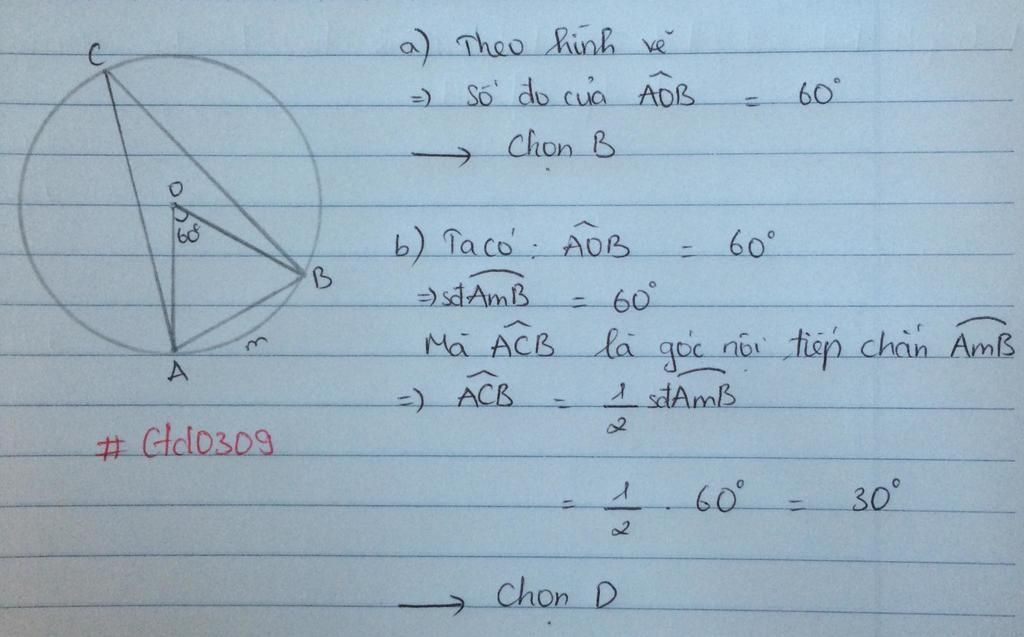 C
O
60°
B
m
A
# Gtd0309
a) Theo hình vẽ
=> Số đo của AOB = 60°
→ Chọn B
b) Ta có : AOB = 60°
=> sđAmB = 60°
Mà ACB là góc nội tiếp chắn AmB
=> ACB = 1/2 sđAmB
= 1/2 . 60° = 30°
→ Chọn D